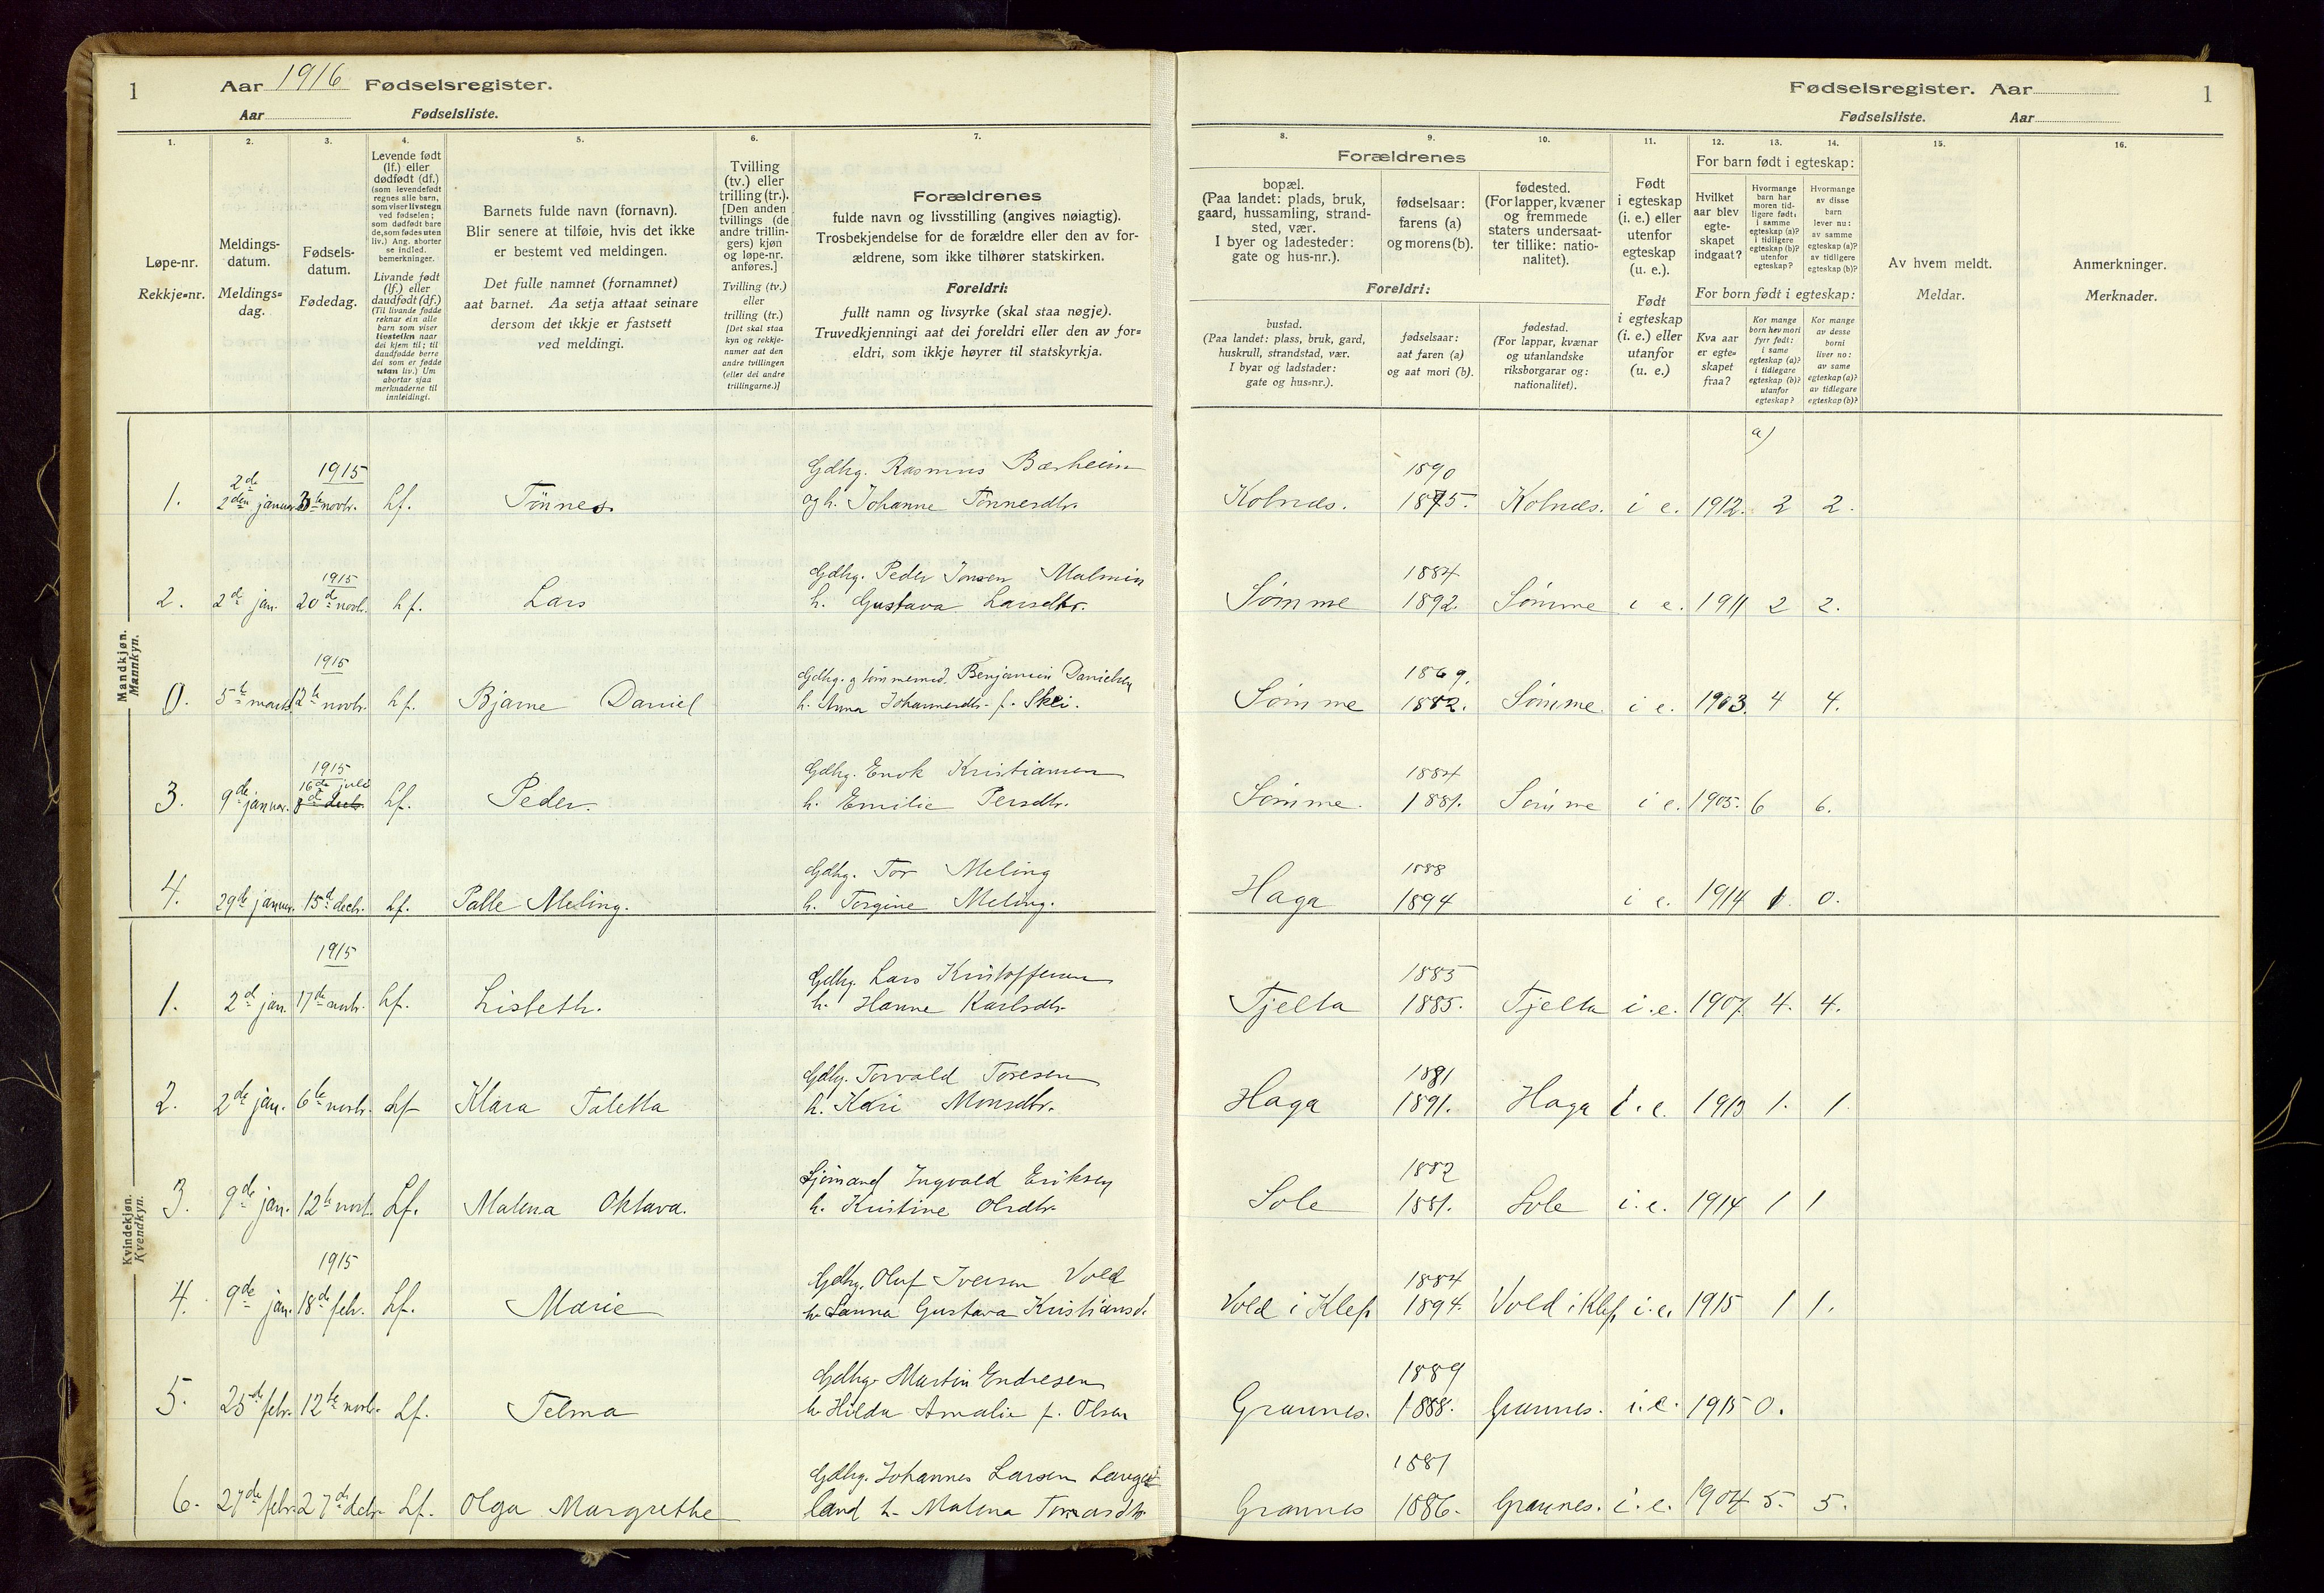 1 Aar 1916 Fødselsregister.
Aar Fødselsliste.
Fødselsregister. Aar 1
Fødselsliste. Aar
1.
Løpe-nr.
Rekkje=nr.
2.
Meldings-
datum.
Meldings=
dag.
3.
Fødsels-
datum.
Fødedag.
4.
Levende født
(lf.) eller
dødfødt (df.)
(som levendefødt
regnes alle barn,
som viser livstegn
ved fødselen;
som dødfødt bare
de, som fødes uten
liv.) Ang. aborter
se indled.
bemerkninger.
Livande født
(lf.) eller
daudfødt (df.)
(Til livande fødde
reknar ein alle
barn som viser
livsteikn naar
dei kjem til; til
daudfødde berre
dei som er fødde
utan liv.) Um
abortar sjaa
merknaderne til
innleidingi.
5.
Barnets fulde navn (fornavn).
Blir senere at tilføie, hvis det ikke
er bestemt ved meldingen.
Det fulle namnet (fornamnet)
aat barnet. Aa setja attaat seinare
dersom det ikkje er fastsett
ved meldingi.
6.
Tvilling
(tv.) eller
trilling (tr.).
[Den anden
tvillings (de
andre trillin-
gers) kjøn
og løpe-nr.
anføres.]
Tvilling (tv.)
eller
trilling (tr.)
[Det skal staa
kyn og rekkje-
numer aat den
andre tvillingen
(eller dei andre
trillingarne.)]
7.
Forældrenes
fulde navn og livsstilling (angives nøiagtig).
Trosbekjendelse for de forældre eller den av for-
ældrene, som ikke tilhører statskirken.
Foreldri:
fullt namn og livsyrke (skal staa nøgje).
Truvedkjenningi aat dei foreldri eller den av for=
eldri, som ikkje høyrer til statskyrkja.
Forældrenes
8.
bopæl.
(Paa landet: plads, bruk,
gaard, hussamling, strand-
sted, vær.
I byer og ladesteder:
gate og hus-nr.).
9.
fødselsaar:
farens (a)
og morens (b).
10.
fødested.
(For lapper, kvæner
og fremmede
staters undersaat-
ter tillike: natio-
nalitet).
Foreldri:
bustad.
(Paa landet: plass, bruk, gard,
huskrull, strandstad, vær.
I byar og ladstader:
gate og hus=nr.).
fødselsaar:
aat faren (a)
og aat mori (b).
fødestad.
(For lappar, kvænar
og utanlandske
riksborgarar og:
nationalitet).
11.
Født
i egteskap
(i. e.) eller
utenfor
egteskap
(u. e.).
Født
i egteskap
(i. e.) eller
utanfor
(u. e.)
12. 13. 14.
For barn født i egteskap:
Hvilket
aar blev
egte-
skapet
indgaat?
Hvormange
barn har
moren tid-
ligere født:
i samme
egteskap (a)?
i tidligere
egteskap (b)?
utenfor
egteskap?
Hvormange
av disse
barn
lever nu:
av samme
egteskap (a)?
av tidligere
egteskap (b)?
For born født i egteskap:
Kva aar
er egte=
skapet
fraa?
Kor mange
born hev mori
fyrr født:
i same
egteskap (a)?
i tidlegare
egteskap (b)?
utanfor
egteskap?
Kor mange
av desse
borni
liver no:
av same
egteskap (a)?
av tidlegare
egteskap (b)?
15.
Av hvem meldt.
Meldar.
16.
Anmerkninger.
Merknader.
a)
Mandkjøn.
Mannkyn.
1915 Gdbg. Rasmus Bærheim 1890
1. 2den januar novbr. Lf. Tønnes. og h. Johanne Tønnesdtr. Kolnæs. 1875. Kolnæs. i e. 1912. 2 2.
1915 Gdbg. Peder Jonsen Malmin 1884
2. 2de jan. 20de novb. Lf. Lars h. Gustava Larsdtr. Sømme 1892. Sømme i e. 1911 2 2.
1915 Gdbg. og tømmermd. Benjamin Danielsen 1869.
0. 5te marts 12te novbr. Lf. Bjarne Daniel h. Anna Johannesdtr. f. Skei. Sømme 1882. Sømme. i e. 1903. 4 4.
1915 Gdbg. Enok Kristiansen 1884
16de juli
3. 9de januar. Lf. Peder. h. Emilie Persdtr. Sømme. 1881. Sømme i e. 1905. 6 6.
Gdbg. Tor Meling 1888
4. 29de januar. 15d decb. Lf. Palle Meling. h. Torgine Meling. Haga 1894 i e. 1914 1. 0.
Kvindekjøn.
Kvendkyn.
1915 Gdbg. Lars Kristoffersen 1883
1. 2d jan. 17de Lf. Lisbeth. h. Hanne Karlsdtr. Tjelta 1885. Tjelta i.e. 1907. 4. 4.
Gdbg. Torvald Toresen 1881
2. 2de jan. 6te novbr. Lf Klara Taletta h. Kari Monsdtr. Haga 1891. Haga i.e. 1913 1. 1
Sjømand Ingvald Eriksen 1882
3. 9de jan. 12te novb. Lf. Malena Oktava. h. Kristine Olsdtr. Sole 1881. Sole i.e. 1914 1 1
1915 Gdbg. Oluf Iversen Vold 1884
4. 9de jan. 18de febr. Lf. Marie h. Sanna Gustava Kristiansd. Vold i Klep 1894. Vold i Klep i.e. 1915 1 1.
Gdbg. Martin Endresen 1889
5. 25de febr. 12te novb. Lf. Telma h. Hilda Amalie f. Olsen Grannes. 1888. Grannes. i.e. 1915 0.
Gdbg. Johannes Larsen Lange- 1881
6. 27de febr. 27de debr. Lf. Olga Margrethe land h. Malena Grannes 1886. Grannes. i.e. 1904 5. 5.